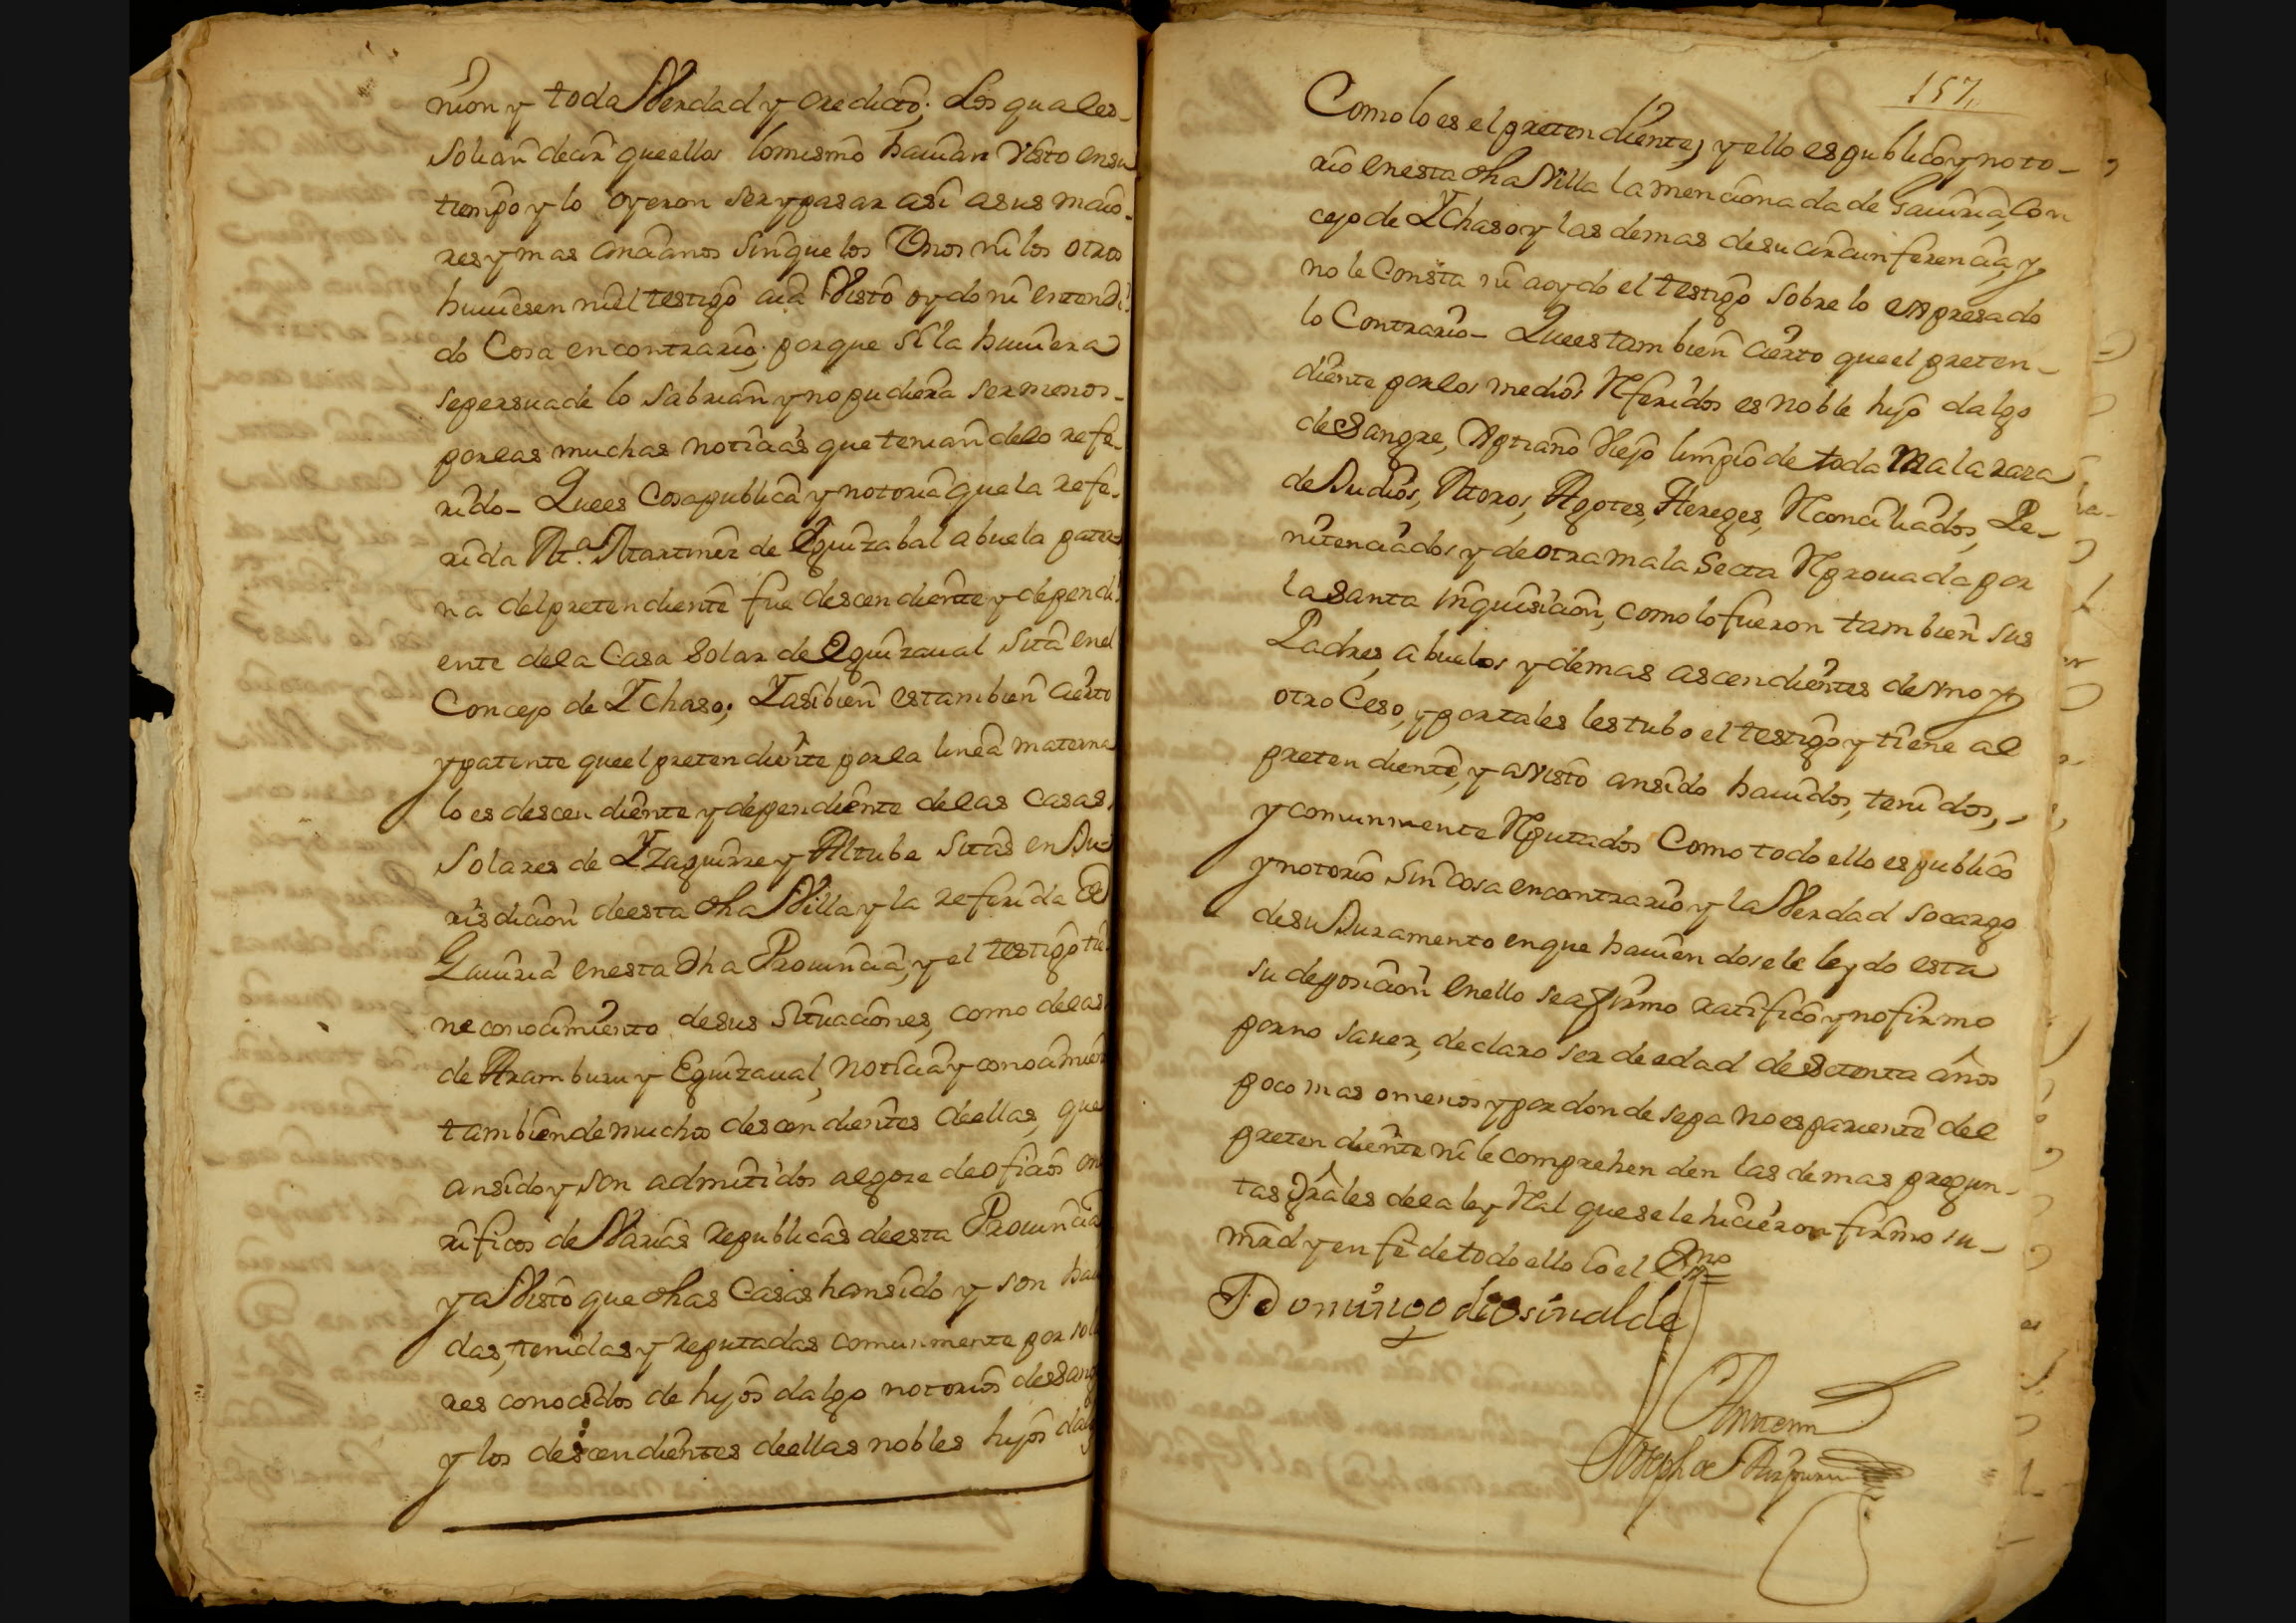 nion y toda Verdad y credicto; Los quales
solian decir que ellos lo mismo hauian Visto en su
tiempo y lo oyeron ser y pasar asi a sus maio-
res y mas ancianos sin que los Unos ni los otros
huuiesen ni el testigo aia Visto oydo ni entendi-
do Cosa en contrario; porque si la huuiera
se persuade lo sabrian y no pudiera ser menos
por las muchas noticias que tenian de lo refe-
rido- Que es Cosa publica y notoria que la refe-
rida Ma. Martinez de Eguizabal abuela pater-
na del pretendiente fue descendiente y dependi-
ente de la Casa Solar de Eguizaual sita en el
Concejo de Ychaso; Y asi bien es tambien cierto
y patente que el pretendiente por la linea materna
lo es descendiente y dependiente de las Casas
Solares de Yzaguirre y Altube sitas en Ju-
risdicion de esta dha Villa y la referida de
Gauiria en esta dha Prouincia, y el testigo tie-
ne conocimiento de sus situaciones, como de las
de Aramburu y Eguizaual, noticia y conocimien
tambien de muchos descendientes de ellas, que
an sido y son admitidos al goze de oficios ono
rificos de Varias Republicas de esta Prouincia
y a Visto que dhas Casas han sido y son haui
das, tenidas y reputadas comunmente por sola
res conocidos de hijos dalgo notorios de Sangre
y los descendientes de ellas nobles hijos dalgo
157,,
Como lo es el pretendiente, y ello es publico y noto-
rio en esta dha Villa la mencionada de Gauiria, Con
cejo de Ychaso y las demas de su circunferencia, y
no le Consta ni a oydo el testigo sobre lo expresado
lo Contrario- Que es tambien cierto que el preten-
diente por los medios Referidos es noble hijo dalgo
de Sangre, Xptiano Viejo limpio de toda Mala raza
de Judios, Moros, Agotes, Hereges, Reconciliados, Pe-
nitenciados y de otra mala Secta Reprouada por
la Santa Inquisicion, como lo fueron tambien sus
Padres, abuelos y demas ascendientes de Vno y
otro Ceso, y por tales les tubo el testigo y tiene al
pretendiente, y a Visto an sido hauidos, tenidos,
y comunmente Reputados Como todo ello es publico
y notorio sin cosa en contrario y la Verdad so cargo
de su Juramento en que hauiendosele leydo esta
su deposicion en ello se afirmo ratifico y no firmo
por no sauer, declaro ser de edad de Setenta años
poco mas o menos y por donde sepa no es pariente del
pretendiente ni le comprehenden las demas pregun-
tas Grales de la ley Real que se le hicieron firmo su
mrd y en fe de todo ello io el Sno
Domingo de Osinalde
Ante mi
Joseph de